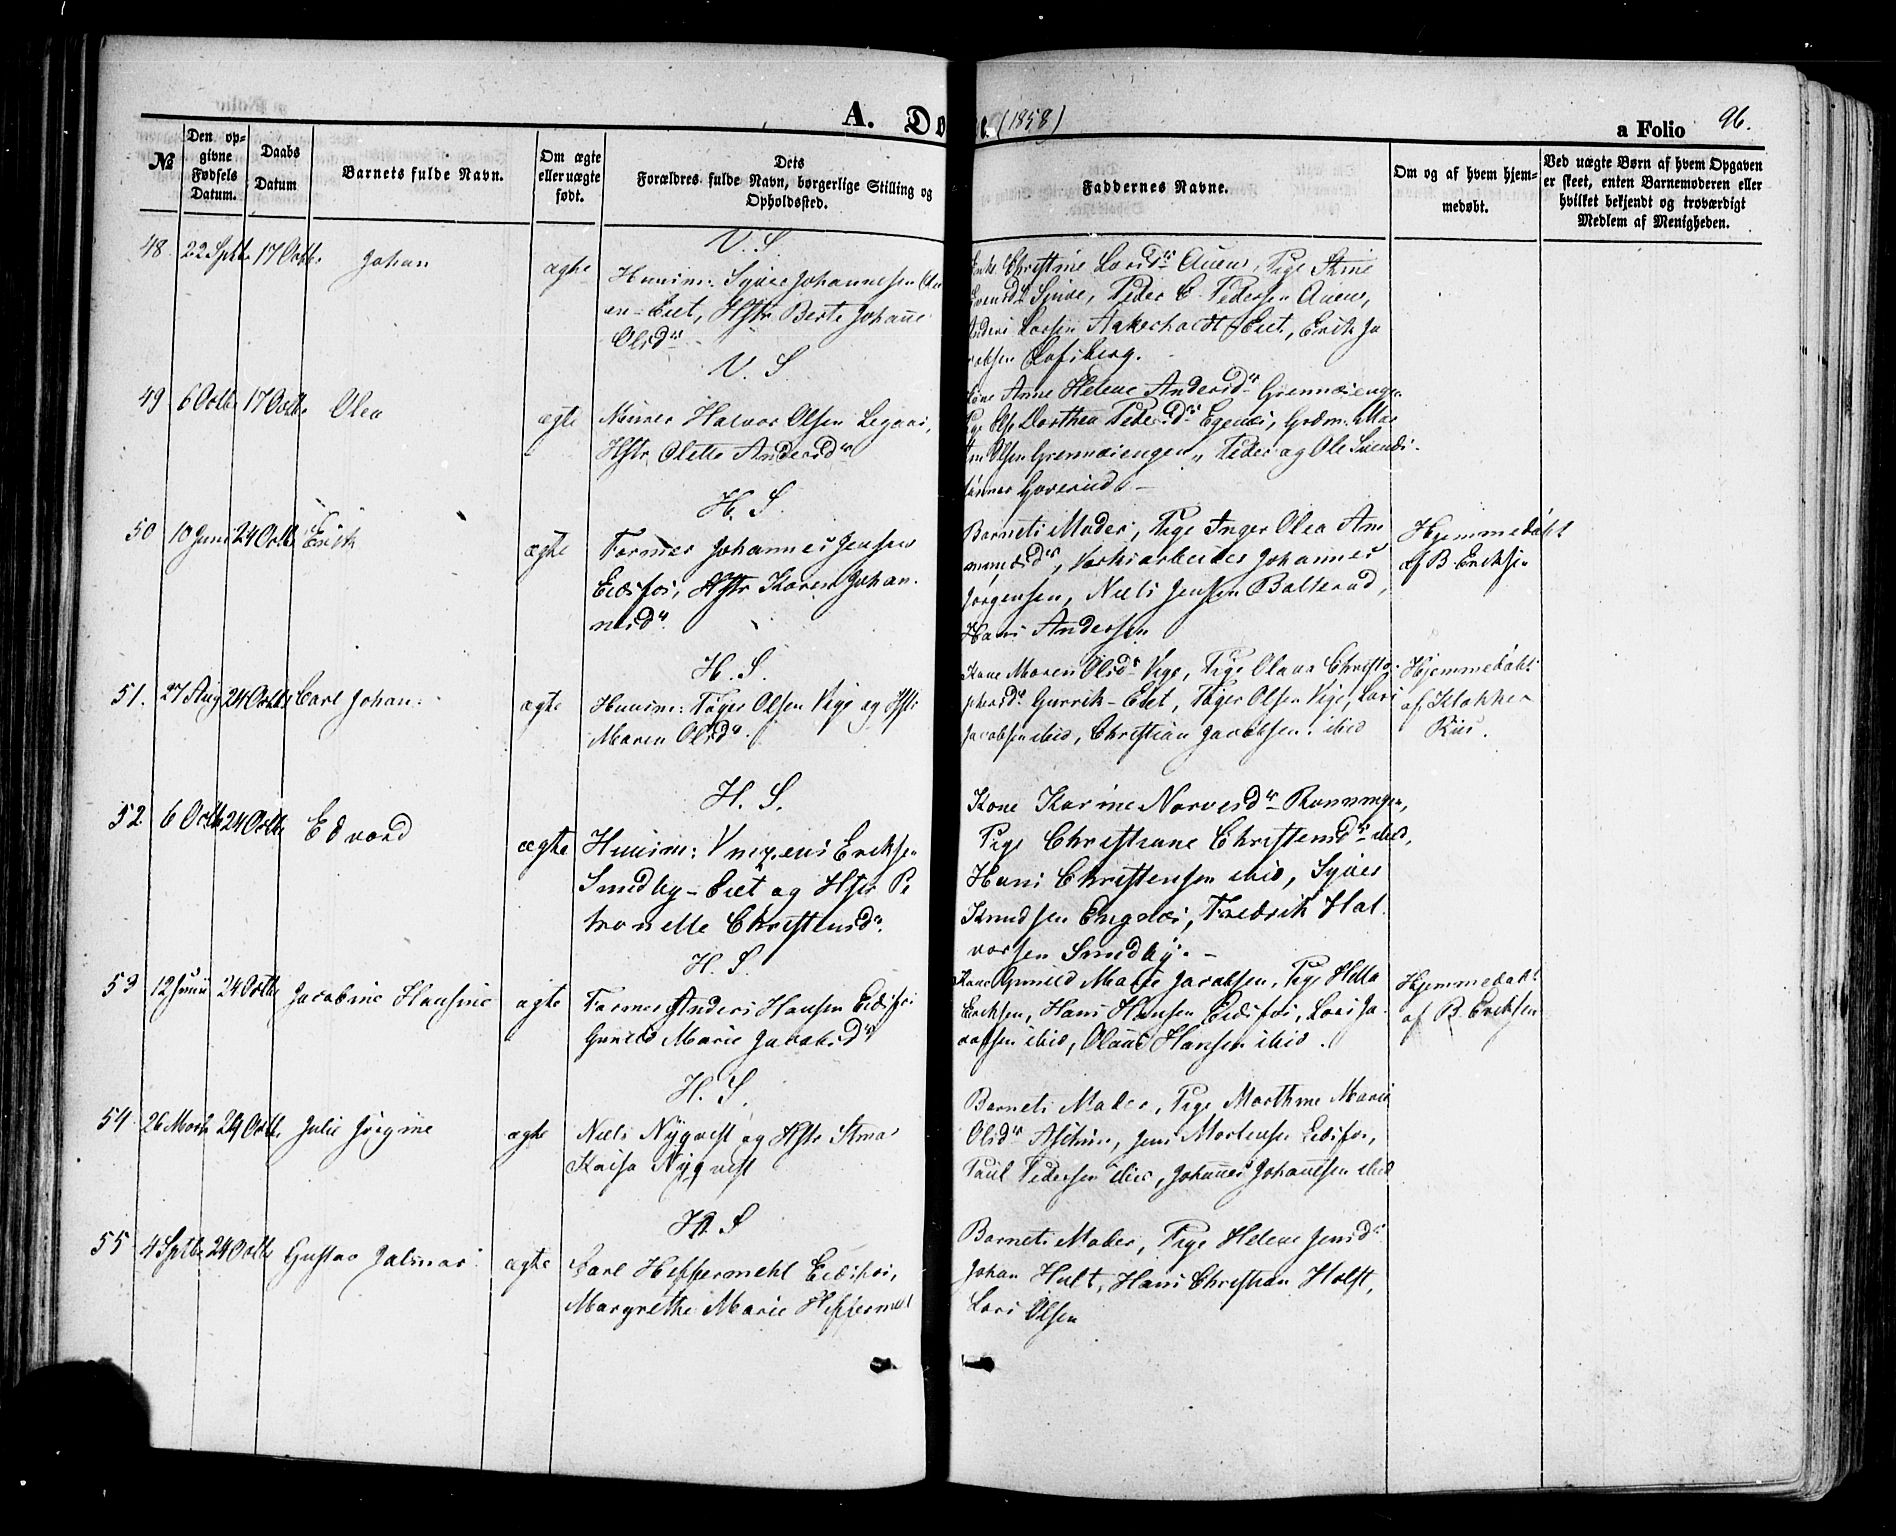 A. Dø e. (1858)
a Folio 96.
№
Den op-
givne
Fødsels
Datum.
Daabs
Datum
Barnets fulde Navn.
Om ægte
eller uægte
født.
Dets
Forældres fulde Navn, borgerlige Stilling og
Opholdssted.
Faddernes Navne.
Om og af hvem hjem-
medøbt.
Ved uægte Børn af hvem Opgaven
er skeet, enten Barnemoderen eller
hvilket bekjendt og troværdigt
Medlem af Menigheden.
V. S
48. 22 Sptb. 17 Octb. Johan ægte
Huusm: Syver Johannesen
en-Eiet, Hstr Berte Johanne
Olsdr
Christine Larsdr Auen, Pige Stine
Svensdr Sjue, Peder E. Pedersen Auen,
Anders Larsen Eiet, Erik Ja
cobsen Olofsberg.
V. S.
49 6 Octb 17 Octb. Olea ægte
Muurer Halvor Olsen
Hstr Olette Andersdr
Kone Anne Helene Andersdr Grennæsengen
Pige Else Dorthea Pedersdr Egenæs, Grdm. Mar
tin Olsen Grennæsengen, Peder og Ole Svends
sønner Goverud. -
H. S.
50 10 Juni 24 Octb Erik ægte
Former Johannes Jensen
Eidsfos, Hstr Karen Johan
nesdr.
Barnets Moder, Pige Inger Olea
Johannes
Jørgensen, Niels Jensen Bolterud,
Hans Andersen
Hjemmedøbt
af B. Eriksen
H. S.
51. 27 Aug 24 Octb Carl Johan. ægte
Huusm: Tøger Olsen Vige og Hstr
Maren Olsdr.
Kone Maren Olsdr Vige, Pige Olava Christo-
phersdr Eiet, Tøger Olsen Vige, Lars
Jacobsen ibid, Christian Jacobsen ibid
Hjemmedøbt
af Klokker
H. S.
52. 6 Octb 24 Octb Edvard ægte
Huusm: Eriksen
Smedby-Eiet og Hstr Pe
tronelle Christensdr.
Kone Karine Narvesdr Ronningen,
Pige Christiane Christensdr ibid,
Hans Christensen ibid, Syver
Knudsen Engenæs, Fredrik Hal
vorsen Smedby. -
H. S.
53 12 Juni 24 Octb Jacobine Hansine ægte
Former Anders Hansen Eidsfos
Gunild Marie Jacobsdr
Kone Gunild Marie Jacobsen, Pige Hella
Eriksen, Hans Hansen Eidsfos, Lars Ja-
cobsen ibid, Olaus Hansen ibid.
Hjemmedøbt
af B. Eriksen
H. S.
54 26 Marts 24 Octb Julie Jørgine ægte
Niels Nyqvist og Hstr Stina
Kaisa Nyqvist
Barnets Moder, Pige Marthine Marie
Olsdr Jens Mortensen Eidsfos,
Paul Pedersen ibid, Johannes Johannesen ibid
H. S
55 4 Sptbr 24 Octb Gustav Jalmar. ægte
Carl Heffermehl Eidsfos,
Margrethe Marie Heffermehl
Barnets Moder, Pige Helene Jensdr
Johan Hult, Hans Christian Holst,
Lars Olsen